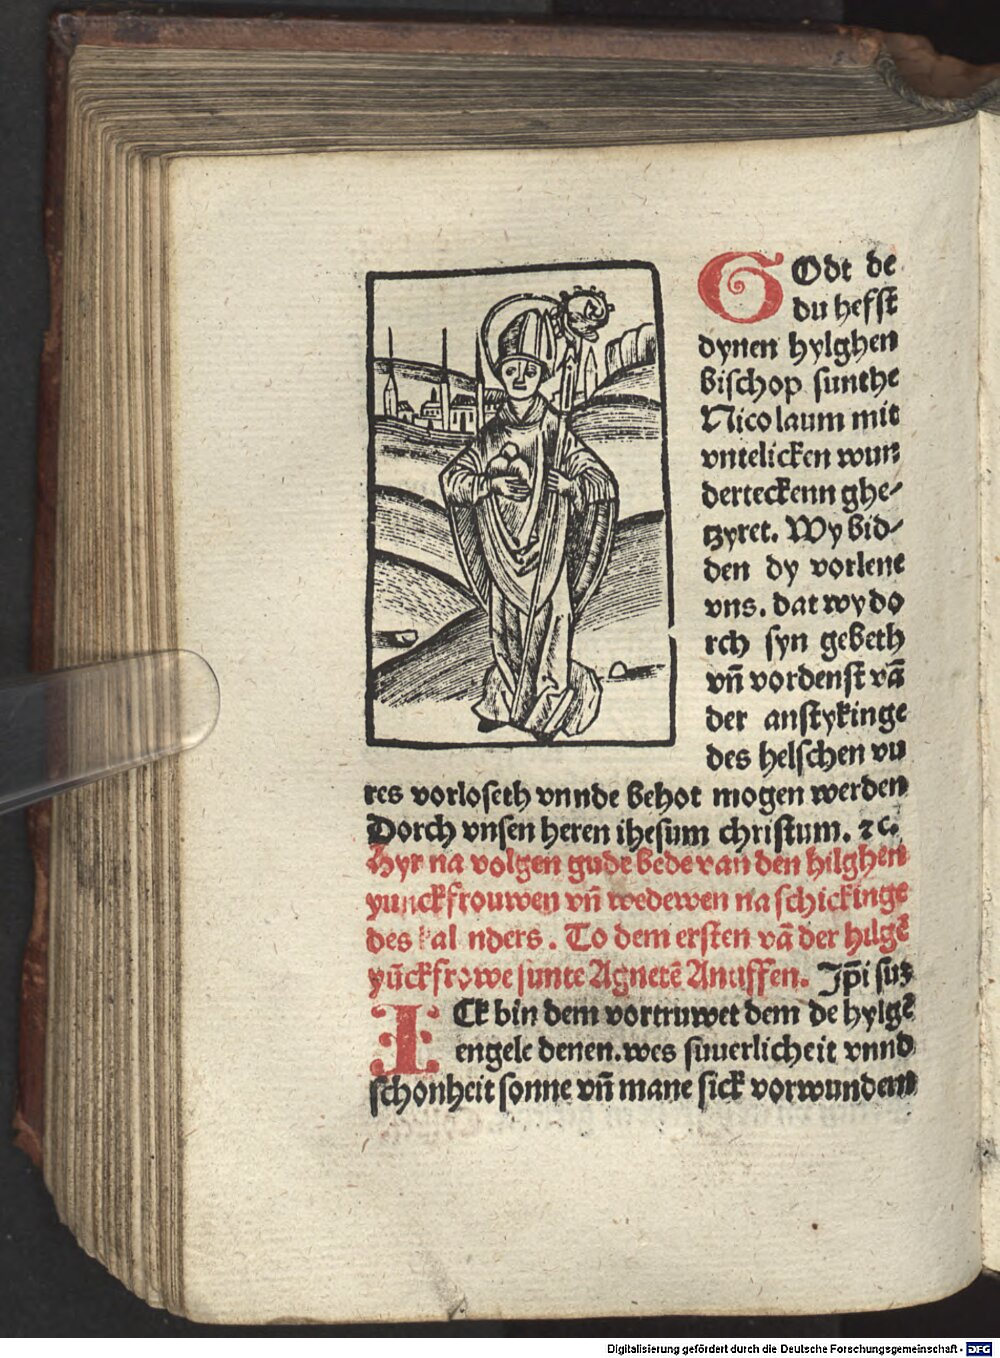 GOdt de
du hefst
dynen hylghen
bischop sunthe
Nicolaum mit
vntelicken wun⸗
derteckenn ghe⸗
tzyret. Wy bid⸗
den dy vorlene
vns. dat wy do
rch syn gebeth
vn̄ vordenst vā
der anstykinge
des helschen vu
res vorloseth vnnde behot mogen werden
Dorch vnsen heren ihesum christum. ⁊c.
Hyr na volgen gude bede van den hilghen
yunckfrouwen vn̄ wedewen na schickinge
des kal nders. To dem ersten vā der hilgē
yūckfrowe sunte Agnetē Antiffen. Jp̄i sus
ICk bin dem vortruwet dem de hylgē
engele denen. wes suuerlicheit vnnd
schonheit sonne vn̄ mane sick vorwundern
Digitalisierung gefördert durch die Deutsche Forschungsgemeinschaft - DFG